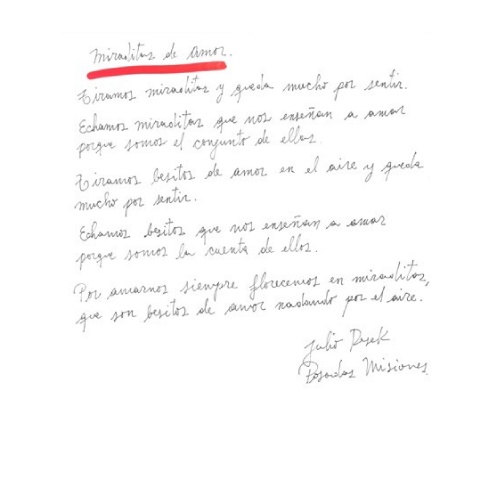 Miraditas de amor.
Tiramos miraditas y queda mucho por sentir.
Echamos miraditas que nos enseñan a amar
porque somos el conjunto de ellas.
Tiramos besitos de amor en el aire y queda
mucho por sentir.
Echamos besitos que nos enseñan a amar
porque somos la cuenta de ellos.
Por amarnos siempre florecemos en miraditas,
que son besitos de amor nadando por el aire.
Julio
Posadas Misiones.